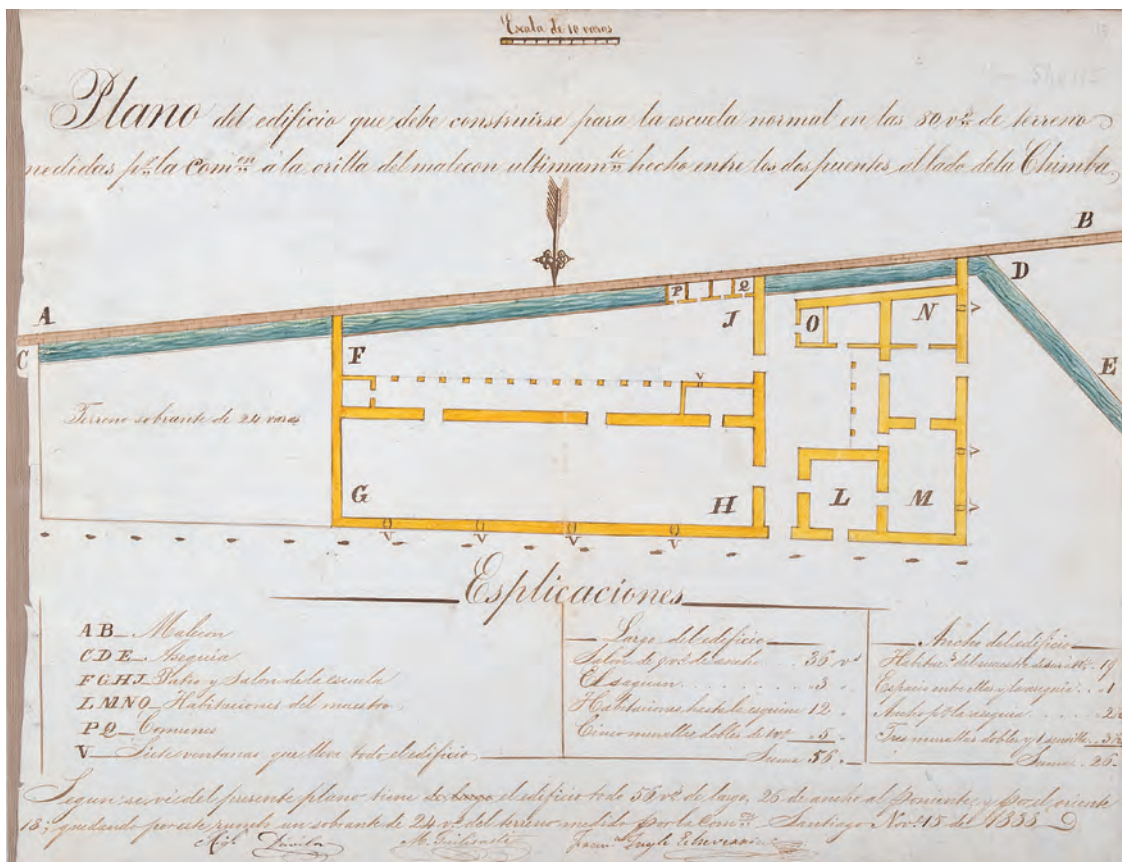 Escala de 10 varas
Plano del edificio que debe construirse para la escuela normal en las 80 v.s de terreno
medidas p.r la Com.on à la orilla del malecon ultimam.te hecho entre los dos puentes al lado de la Chimba
A
B
C
D
E
F
G
H
J
L
M
N
O
P
Q
V
V
V
V
V
V
V
V
Terreno sobrante de 24 varas
Esplicaciones
A B Malecon
C D E Asequia
F G H J Patio y Salon de la escuela
L M N O Habitaciones del maestro
P Q Comunes
V Siete ventanas que lleva todo el edificio
Largo del edificio
Salon de 9 v.s de ancho 36 v.s
El saguan 3
Habitaciones hasta la esquina 12
Cinco murallas dobles de 5
Suma 56
Ancho del edificio
del maestro 19
Espacio entre ellas y la asequia 1
Ancho p.a la asequia
Tres murallas dobles y 1 sencilla
Suma 26
Segun se vé del presente plano tiene el edificio todo 56 v.s de largo, 26 de ancho al poniente y por el oriente
18; quedando por este rumbo un sobrante de 24 v.s del terreno medido por la Com.on Santiago Nov.e 15 de 1833